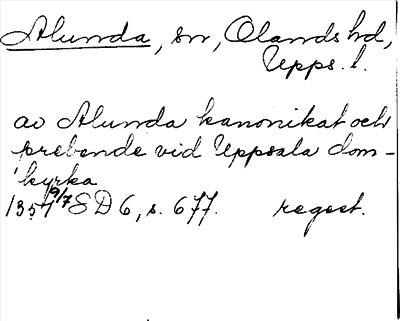 Alunda, sn, Olands hd,
Upps. l.
av Alunda kanonikat och
prebende vid Uppsala dom-
kyrka
1357 9/7 SD 6, s. 677. regest.